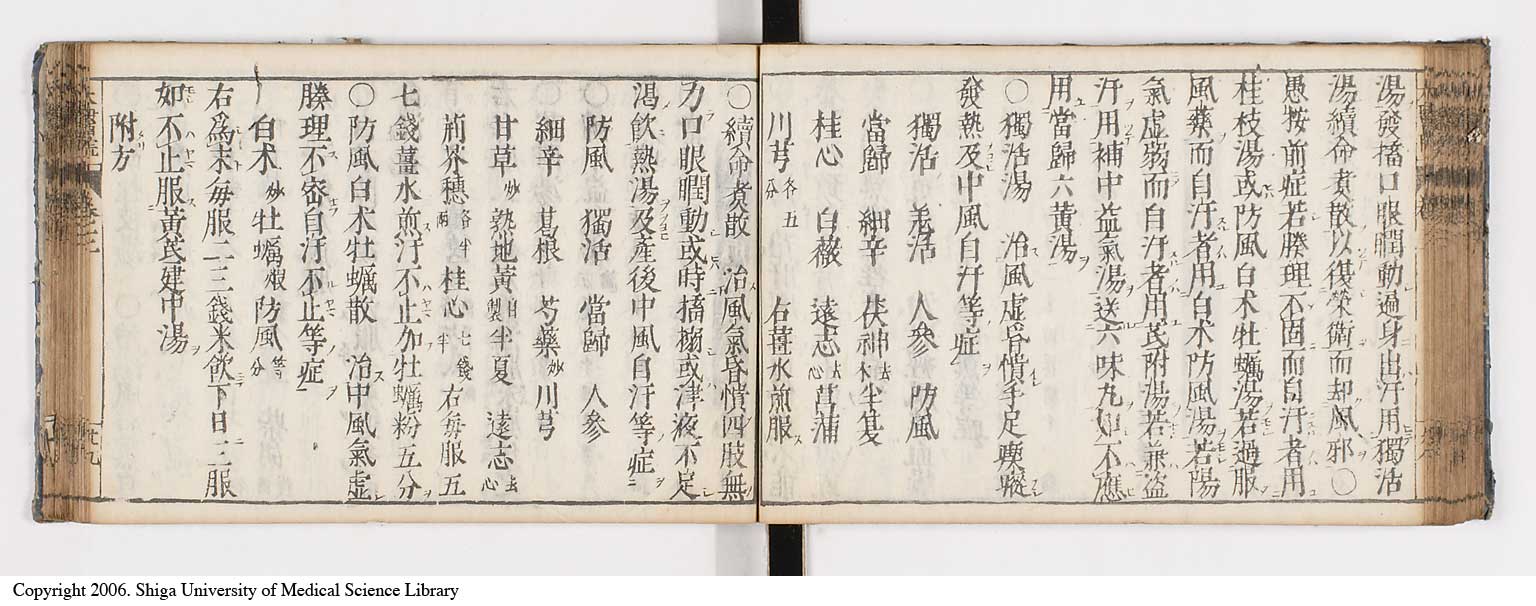 湯發搐口眼瞤動過身出汗用獨活
湯續命煮散以復榮衛而却風邪○
愚按前症若腠理不固而自汗者用
桂枝湯或防風白术牡蠣湯若過服
風藥而自汗者用白术防風湯若陽
氣虛弱而自汗者用芪附湯若兼盗
汗用補中益氣湯送六味丸如不應
用當歸六黃湯
○獨活湯 治風虛昏憒手足瘈瘲
發熱及中風自汗等症
獨活 羌活 人參 防風
當歸 細辛 茯神去木 半夏
桂心 白薇 遠志去心 菖蒲
川芎各五分 石 水煎服
○續命煮散 治風氣昏憒四肢無
力口眼瞤動或時搐搦或津液不足
渴飲熱湯及產後中風自汗等症
○防風 獨活 當歸 人參
細辛 葛根 芍藥炒 川芎
甘草炒 熟地黃自製 半夏 遠志去心
荊芥穗各半兩 桂心七錢半 右每服五
七錢薑水煎汗不止加牡蠣粉五分
○防風白术牡蠣散 治中風氣虛
腠理不密自汗不止等症
白术炒 牡蠣煅 防風等分
右爲末每服二三錢米飲下日二服
如不止服黃芪建中湯
附方
Copyright 2006. Shiga University of Medical Science Library